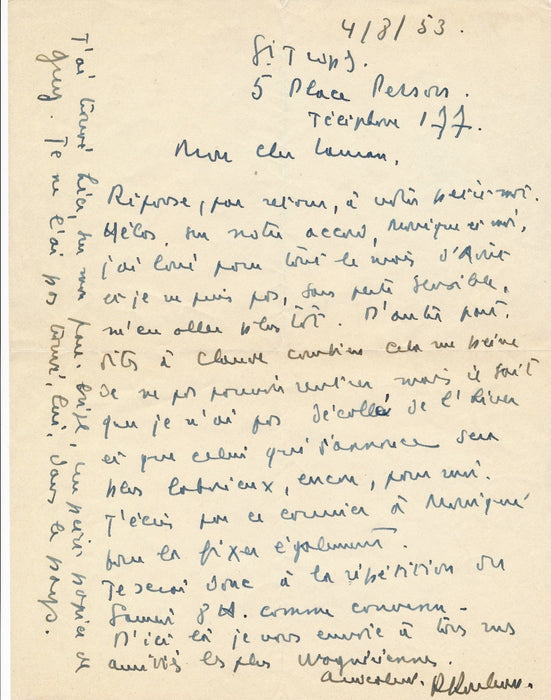 4/8/53.
5 Place
Téléphone 177.
Mon cher
Réponse, par retour, à votre petit mot.
Hélas, sur notre accord, Monique et moi,
j'ai loué pour tout le mois d'Août
et je ne puis pas, sans perte sensible,
m'en aller plus tôt. D'autre part,
dites à Claude combien cela me peine
de ne pas pouvoir rentrer mais il sait
que je n'ai pas décollé de l'hiver
et que celui qui s'annonce sera
plus laborieux, encore, pour moi.
J'écris par ce courrier à Monique
pour la fixer également.
Je serai donc à la répétition du
Samedi 8 H. comme convenu -
D'ici là je vous envoie à tous mes
amitiés les plus wagnériennes.
J'ai trouvé hier, sur mon un petit papier de
Guy. Je ne l'ai pas trouvé, lui, dans le pays.